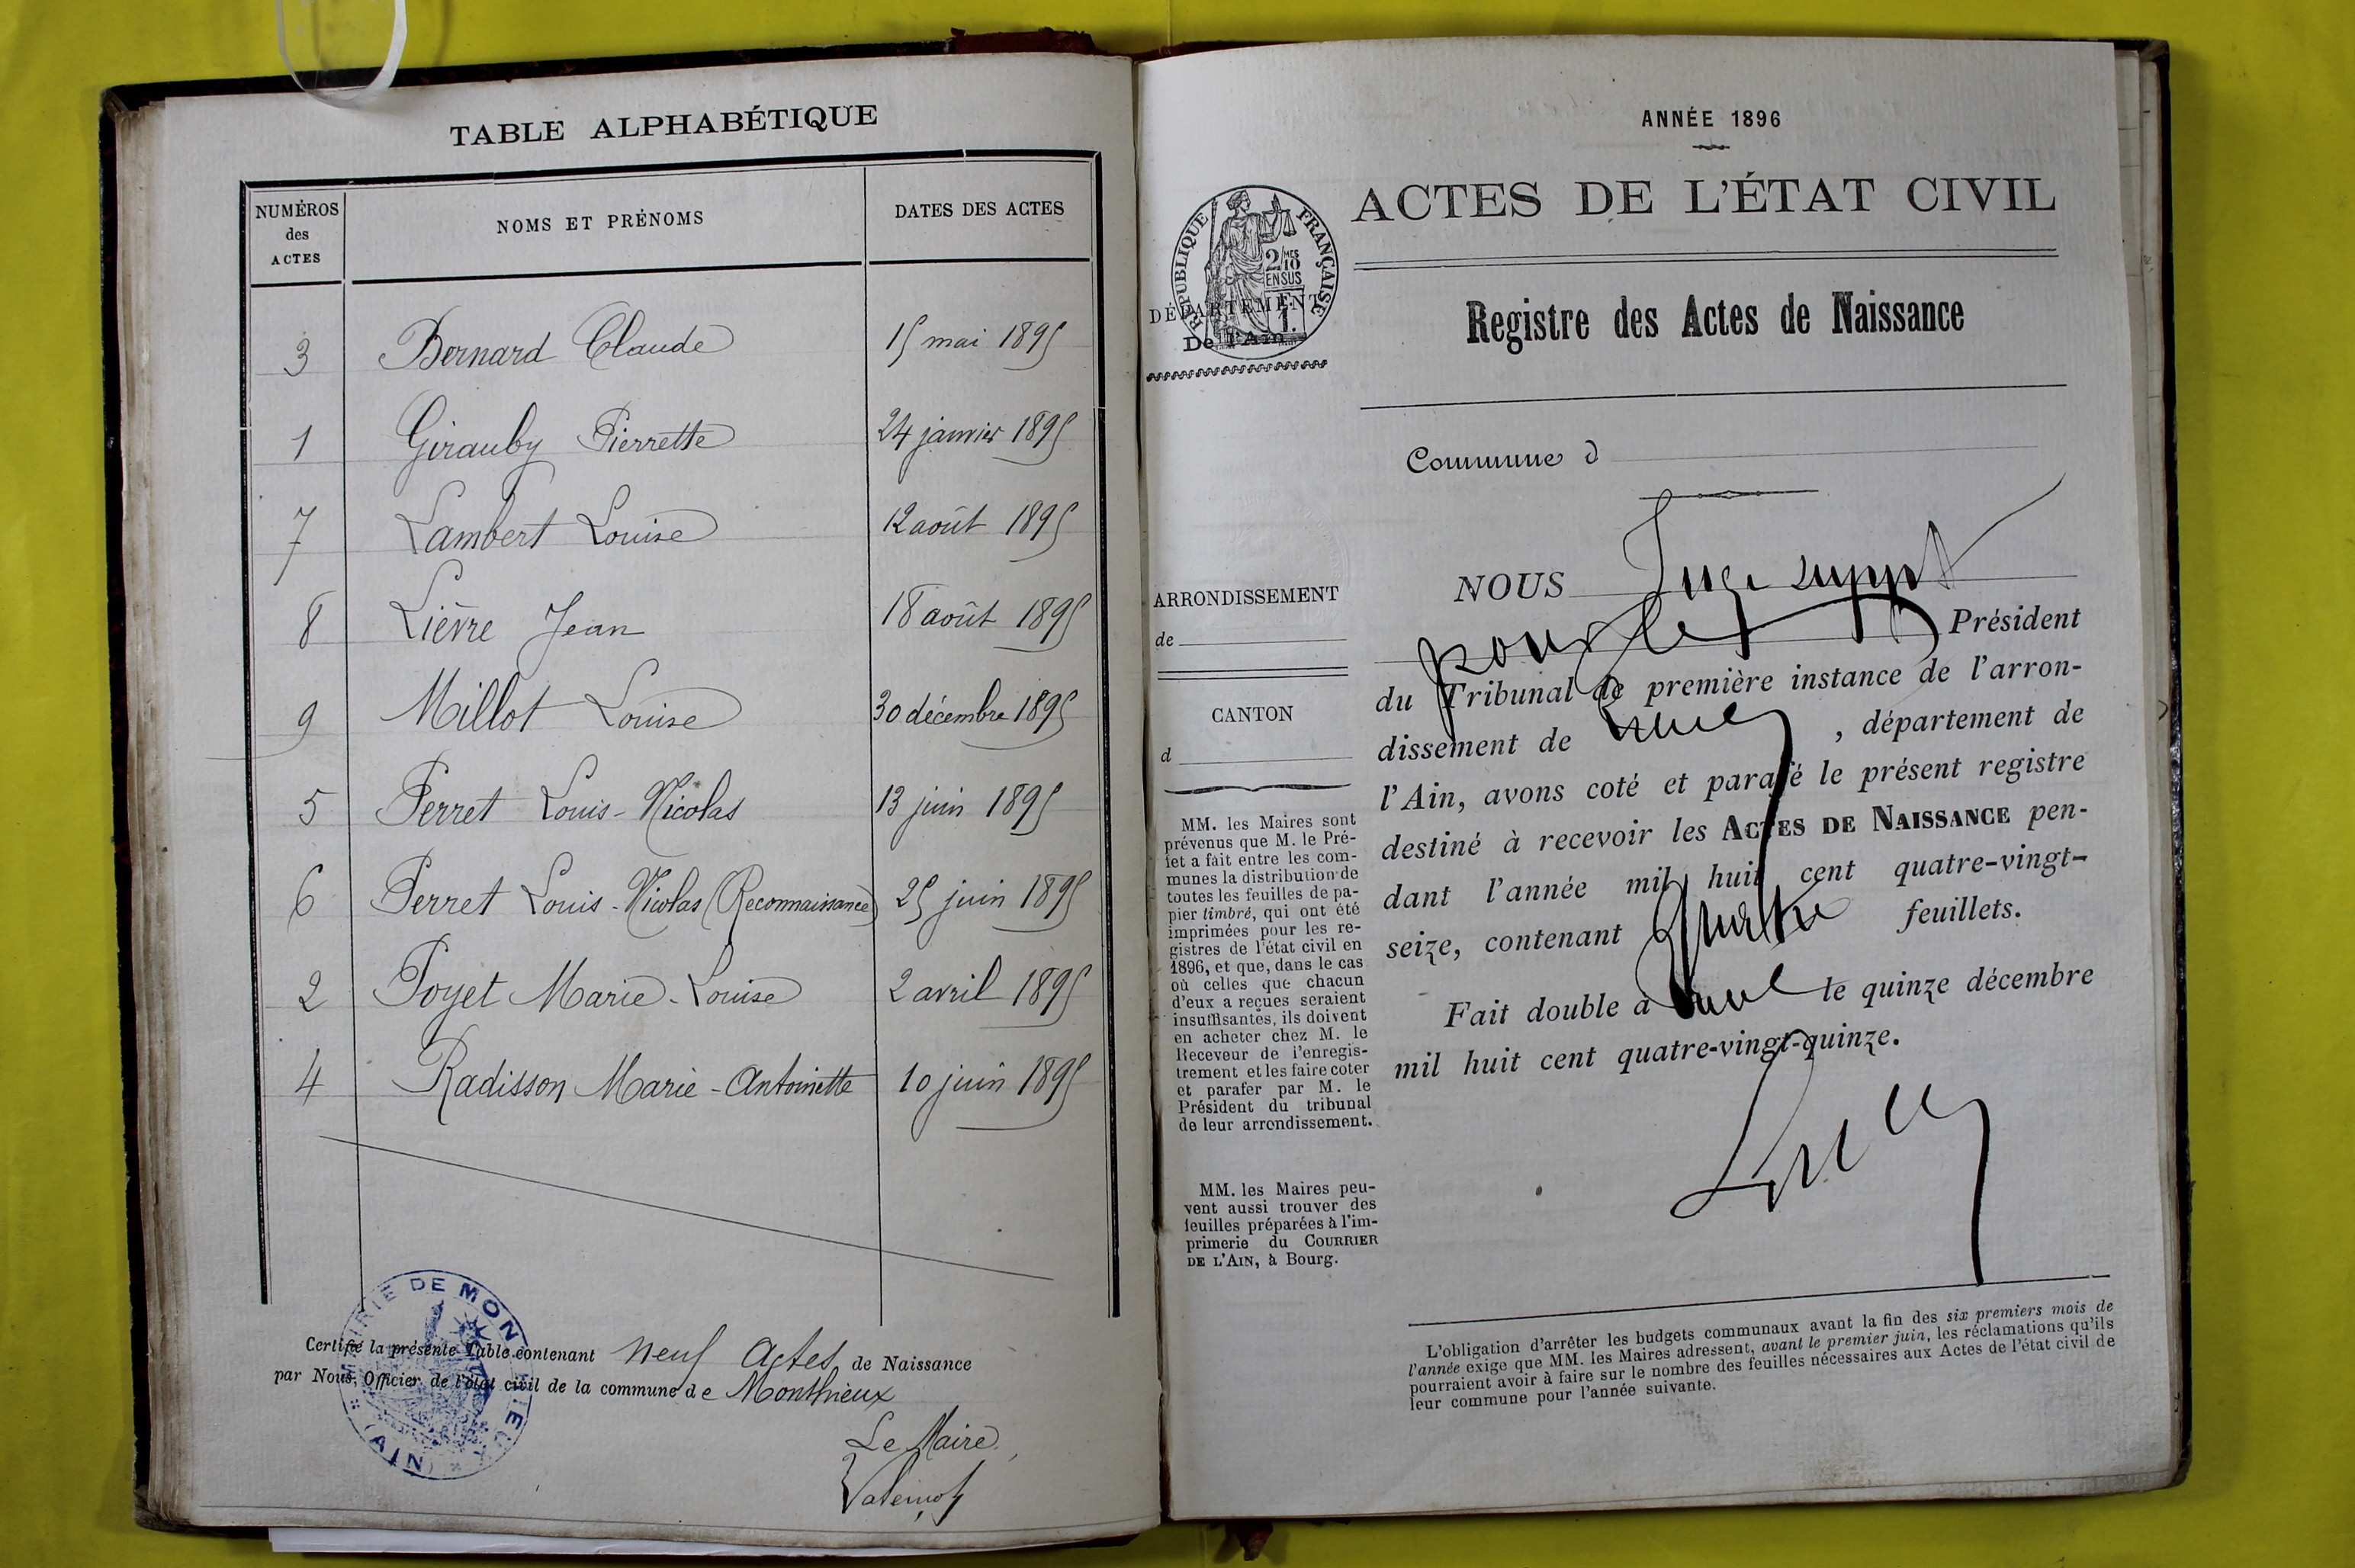 TABLE ALPHABÉTIQUE
NUMÉROS des ACTES NOMS ET PRÉNOMS DATES DES ACTES
3 Bernard Claude 15 mai 1895
1 Girauby Pierrette 24 janvier 1895
7 Lambert Louise 12 août 1895
8 Lièvre Jean 18 août 1895
9 Millot Louise 30 décembre 1895
5 Perret Louis-Nicolas 13 juin 1895
6 Perret Louis-Nicolas (Reconnaissance) 25 juin 1895
2 Poyet Marie-Louise 2 avril 1895
4 Radisson Marie-Antoinette 10 juin 1895
Certifié la présente Table contenant neuf actes de Naissance
par Nous, Officier de l'état civil de la commune de Monthieux
MAIRIE DE MONTHIEUX
(AIN)
Le Maire
ANNÉE 1896
ACTES DE L'ÉTAT CIVIL
RÉPUBLIQUE FRANÇAISE
2/10MES
EN SUS
DÉPARTEMENT
De l'Ain
Registre des Actes de Naissance
Commune d
ARRONDISSEMENT
de
CANTON
d
MM. les Maires sont
prévenus que M. le Pré-
fet a fait entre les com-
munes la distribution de
toutes les feuilles de pa-
pier timbré, qui ont été
imprimées pour les re-
gistres de l'état civil en
1896, et que, dans le cas
où celles que chacun
d'eux a reçues seraient
insuffisantes, ils doivent
en acheter chez M. le
Receveur de l'enregis-
trement et les faire coter
et parafer par M. le
Président du tribunal
de leur arrondissement.
MM. les Maires peu-
vent aussi trouver des
feuilles préparées à l'im-
primerie du COURRIER
DE L'AIN, à Bourg.
NOUS Juge suppt
pour le Président
du Tribunal de première instance de l'arron-
dissement de , département de
l'Ain, avons coté et parafé le présent registre
destiné à recevoir les ACTES DE NAISSANCE pen-
dant l'année mil huit cent quatre-vingt-
seize, contenant quatre feuillets.
Fait double à le quinze décembre
mil huit cent quatre-vingt-quinze.
L'obligation d'arrêter les budgets communaux avant la fin des six premiers mois de
l'année exige que MM. les Maires adressent, avant le premier juin, les réclamations qu'ils
pourraient avoir à faire sur le nombre des feuilles nécessaires aux Actes de l'état civil de
leur commune pour l'année suivante.